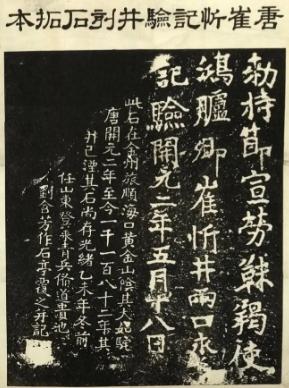 唐崔忻記驗井刻石拓本
勅持節宣勞靺羯使
鴻臚卿崔忻井兩口永
記驗開元二年五月十八日
此石在金州旅順海口黃金山陰其大如駝
唐開元二年至今一千一百八十二年其
井已湮其石尚存光緒乙未年冬前
任山東登萊青兵備道貴池
劉含芳作石亭覆之并記